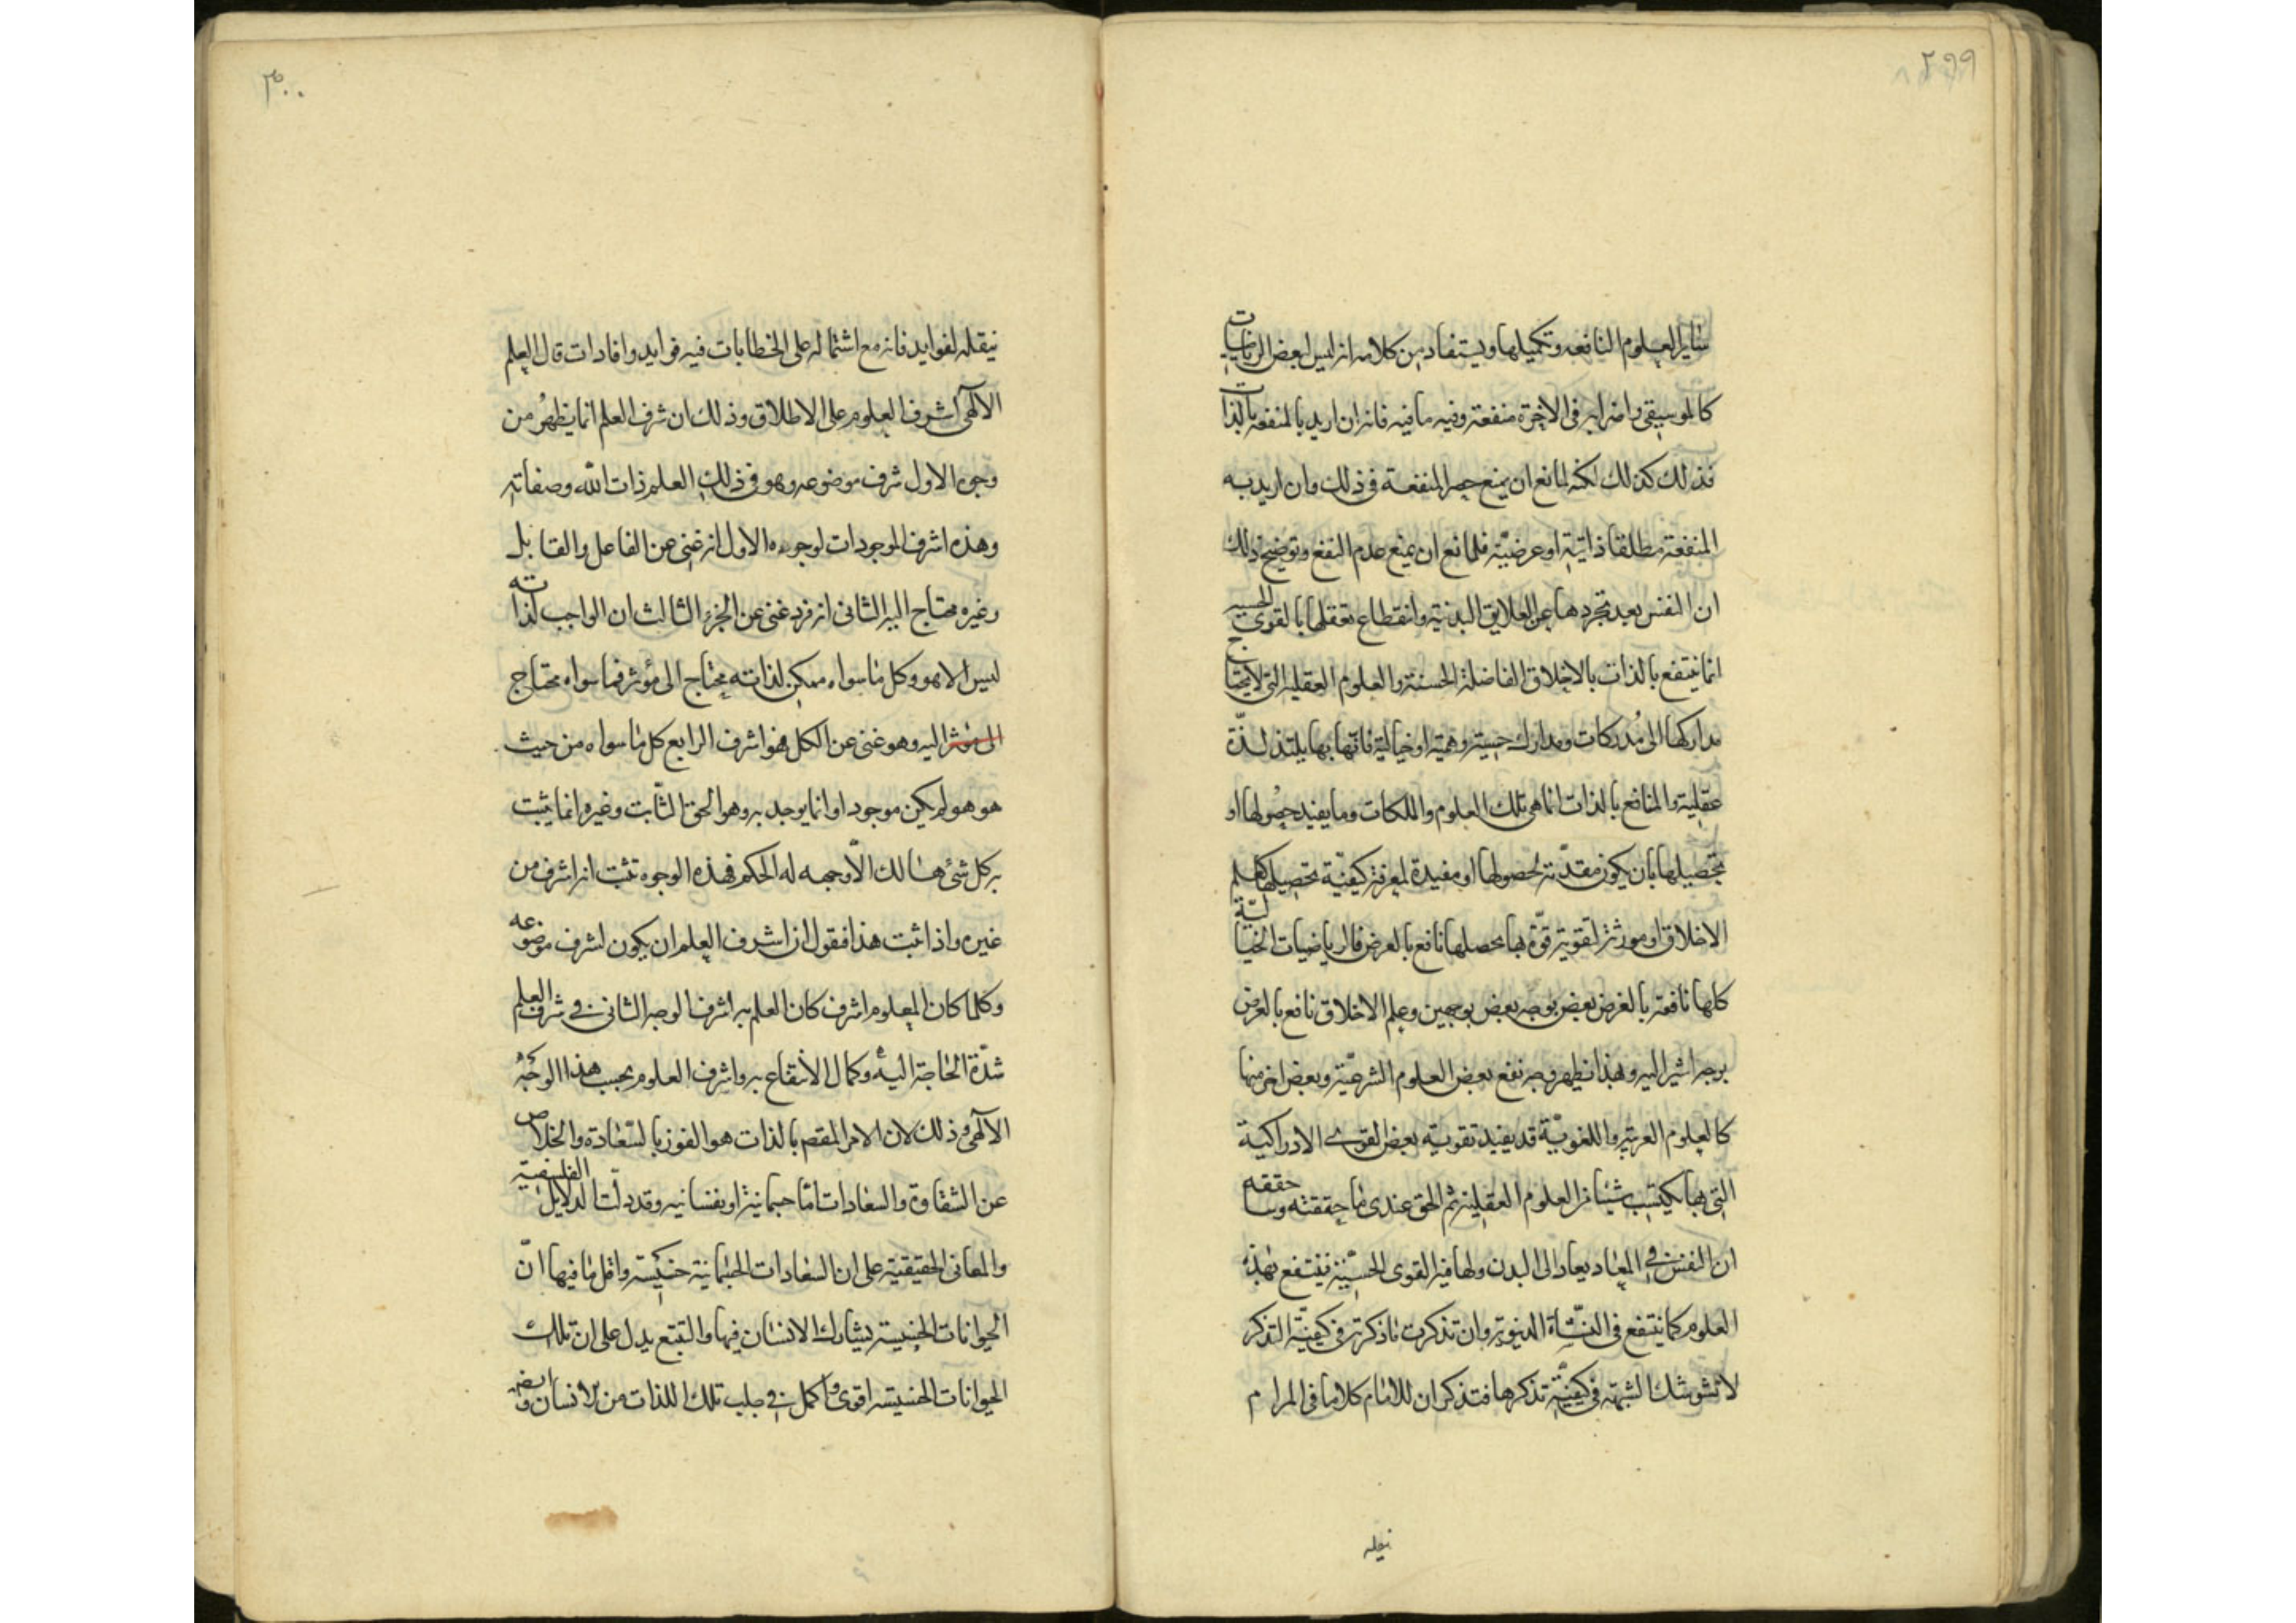 ٢٩٩
ساير العلوم النافعه وتكميلها ويستفاد من كلامه انه ليس لبعض الرياضيات
كالموسيقى وامثاله فى الاخرة منفعة وفيه ما فيه فانه ان اريد بالمنفعة بالذات
فذلك كذلك لكنه لمانع ان يمنع حصر المنفعة فى ذلك وان اريد به
المنفعة مطلقا ذاتية او عرضية فلمانع ان يمنع عدم النفع وتوضيح ذلك
ان النفس بعد تجردها عن العلايق البدنية وانقطاع تعقلها بالقوى الحسية
انما ينتفع بالذات بالاخلاق الفاضلة الحسنة والعلوم العقليه التى لا يحتاج
مداركها الى مدركات ومدارك حسية وهمية او خيالية فانها بها يلتذ لذّة
عقلية والمنافع بالذات انما هى تلك العلوم والملكات وما يفيد حصولها او
تحصيلها بان يكون مقدّمة لحصولها او مفيدة لمعرفة كيفيّة تحصيلها كعلم
الاخلاق او مورثة لتقوية قوّة بها يحصلها نافع بالعرض فالرياضيات الخياليّة
كلها نافعة بالعرض بعض بوجه بعض بوجهين وعلم الاخلاق نافع بالعرض
بوجه اشير اليه وبهذا يظهر وجه نفع بعض العلوم الشرعيّة وبعض اخر منها
كالعلوم العربية واللغويّة قد يفيد تقوية بعض القوى الادراكية
التى بها يكتسب شيئا من العلوم العقلية ثم الحق عندى ما حققته وساحققه
ان النفس فى المعاد يعاد الى البدن ولها فيه القوى الحسيّة فينتفع بهذه
العلوم كما ينتفع فى النشأة الدنيوية وان تذكرت ما ذكرته فى كيفيّة التذكر
لا تشوشك الشبهة فى كيفيّة تذكرها فتذكر ان للامام كلاما فى المرام
نيقله
٣٠٠
نيقله لفوايد فانه مع اشتماله على الخطابات فيه فوايد وافادات قال العلم
الالهى اشرف العلوم على الاطلاق وذلك ان شرف العلم انما يظهر من
وجوه الاول شرف موضوعه وهو فى ذلك العلم ذات الله وصفاته
وهذه اشرف الموجودات لوجوه الاول انه غنى عن الفاعل والقابل
وغيره محتاج اليه الثانى انه فرد غنى عن الجزء الثالث ان الواجب لذاته
ليس الا هو وكل ما سواه ممكن لذاته محتاج الى مؤثر فما سواه محتاج
الى مؤثر اليه وهو غنى عن الكل فهو اشرف الرابع كل ما سواه من حيث
هو هو لم يكن موجودا وانما يوجد به وهو الحق الثابت وغيره انما يثبت
به كل شئ هالك الّا وجهه له الحكم فهذه الوجوه تثبت انه اشرف من
غيره واذا ثبت هذا فنقول ان اشرف العلم ان يكون لشرف موضوعه
وكلما كان المعلوم اشرف كان العلم به اشرف الوجه الثانى فى شرف العلم
شدّة الحاجة اليه وكمال الانتفاع به واشرف العلوم بحسب هذا الوجه
الالهى وذلك لان الامر المقصم بالذات هو الفوز بالسّعادة والخلاص
عن الشقاوة والسعادات امّا جسمانية او نفسانيه وقد دلّت الدلايل الفلسفية
والمعانى الحقيقية على ان السعادات الجسمانية خسيسة واقل ما فيها انّ
الحيوانات الخسيسة يشارك الانسان فيها والتتبع يدل على ان تلك
الحيوانات الخسيسه اقوى واكمل فى جلب تلك اللذات من الانسان وايضه